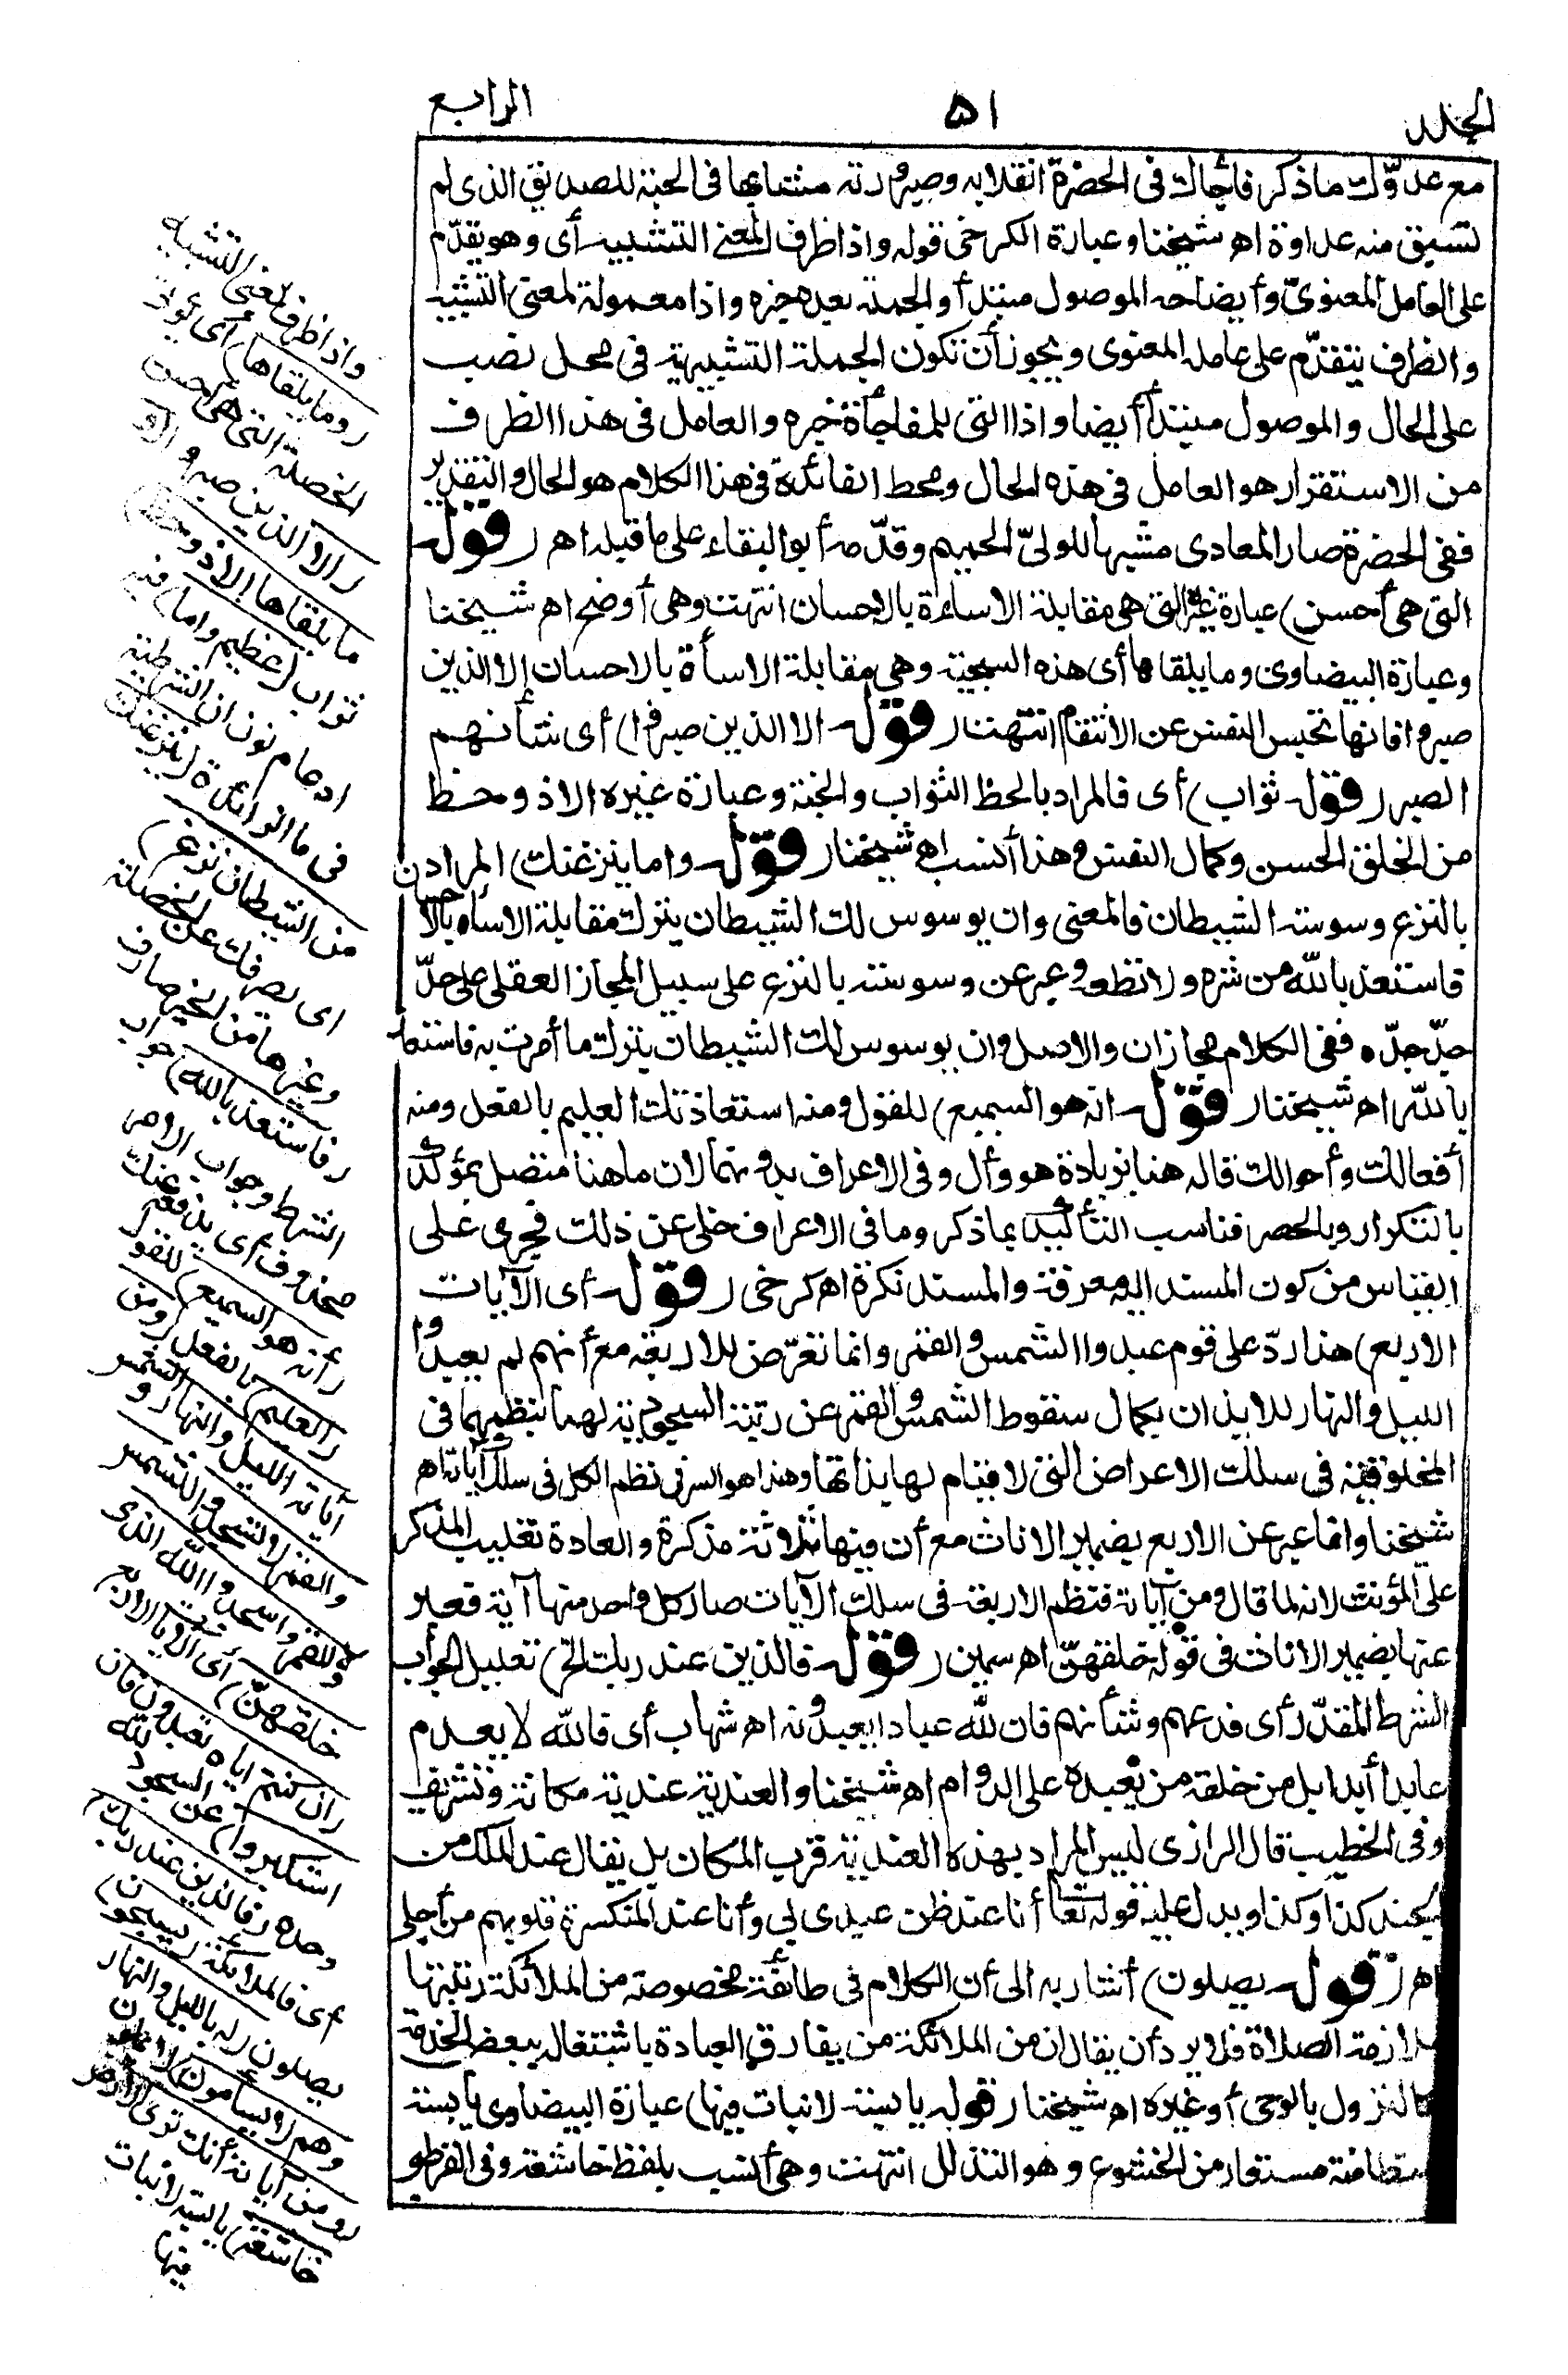 المجلد
٥١
الرابع
مع عدوّك ما ذكر فاجأك في الحضرة انقلابه وصيرورته مشابها في المحبة للصديق الذى لم
تسبق منه عداوة اهـ شيخنا وعبارة الكرخى قوله واذا ظرف لمعنى التشبيه أى وهو يقدّم
على العامل المعنوىّ وأيضاحه الموصول مبتدأ والجملة بعده خبره واذا معمولة لمعنى التشبيه
والظرف يتقدّم على عامله المعنوى ويجوز أن تكون الجملة التشبيهية فى محل نصب
على الحال والموصول مبتدأ أيضا واذا التى للمفاجأة خبره والعامل فى هذا الظرف
من الاستقرار هو العامل فى هذه الحال ومحط الفائدة فى هذا الكلام هو الحال والتقدير
ففى الحضرة صار المعادى مشبها للولىّ الحميم وقدّمه أبو البقاء على ما قبله اهـ (قوله
التى هى أحسن) عبارة غيره التى هى مقابلة الاساءة بالاحسان انتهت وهى أوضح اهـ شيخنا
وعبارة البيضاوى وما يلقاها أى هذه السجية وهى مقابلة الاسأة بالاحسان إلا الذين
صبروا فانها تحبس النفس عن الانتقام انتهت (قوله الا الذين صبروا) أى شأنهم
الصبر (قوله ثواب) أى فالمراد بالحظ الثواب والجنة وعبارة غيره الا ذو حظ
من الخلق الحسن وكمال النفس وهذا أنسب اهـ شيخنا (قوله واما ينزغنك) المراد
بالنزغ وسوسة الشيطان فالمعنى وان يوسوس لك الشيطان بترك مقابلة الاساه بالاحسان
فاستعذ بالله من شره ولا تطعه وعبر عن وسوسته بالنزغ على سبيل المجاز العقلى على حدّ
جدّ جدّه ففى الكلام مجازان والاصل وان يوسوس لك الشيطان بترك ما أمرت به فاستعذ
بالله اهـ شيخنا (قوله انه هو السميع) للقول ومنه استعاذتك العليم بالفعل ومنه
أفعالك وأحوالك قاله هنا بزيادة هو وأل وفى الاعراف بدونهما لان ما هنا متصل بمؤكد
بالتكرار وبالحصر فناسب التأكيد بما ذكر وما فى الاعراف خلى عن ذلك فجرى على
القياس من كون المسند اليه معرفة والمسند نكرة اهـ كرخى (قوله أى الآيات
الاربع) هذا ردّ على قوم عبدوا الشمس والقمر وانما تعرّض للاربعة مع أنهم لم يعبدوا
الليل والنهار للايذان بكمال سقوط الشمس والقمر عن رتبة السجودية لهما بنظمهما فى
المخلوقية فى سلك الاعراض التى لا قيام لها بذاتها وهذا هو السر فى نظم الكل فى سلك آياته اهـ
شيخنا وانما عبر عن الاربع بضمير الاناث مع أن فيها ثلاثة مذكرة والعادة تغليب المذكر
على المؤنث لانه لما قال ومن آياته فنظم الاربعة فى سلك الآيات صار كل واحد منها آية فعبر
عنها بضمير الاناث فى قوله خلقهنّ اهـ سمين (قوله فالذين عند ربك الخ) تعليل لجواب
الشرط المقدّر أى فدعهم وشأنهم فان لله عبادا يعبدونه اهـ شهاب أى فالله لا يعدم
عابدا أبدا بل من خلقه من يعبده على الدوام اهـ شيخنا والعندية عندية مكانة وتشريف
وفى الخطيب قال الرازى ليس المراد بهذه العندية قرب المكان بل يقال عند الملك من
الجند كذا وكذا ويدل عليه قوله تعا أنا عند ظن عبدى بى وأنا عند المنكسرة قلوبهم من أجلى
اهـ (قوله يصلون) أشار به الى أن الكلام فى طائفة مخصوصة من الملائكة رتبتها
ملازمة الصلاة فلا يرد أن يقال ان من الملائكة من يفارق العبادة باشتغاله ببعض الخدمة
كالنزول بالوحى أو غيره اهـ شيخنا (قوله يابسة لا نبات فيها) عبارة البيضاوى يابسة
متطامنة مستعار من الخشوع وهو التذلل انتهت وهى أنسب بلفظ خاشعة وفى القرطبى
واذا ظرف لمعنى التشبيه
(وما يلقاها) أى يؤتى
الخصلة التى هى أحسن
(الا الذين صبروا وما
يلقاها الا ذو حظ)
ثواب (عظيم واما) فيه
ادغام نون ان الشرطية
فى ما الزائدة (ينزغنك
من الشيطان نزغ)
اى يصرفك عن الخصلة
وغيرها من الخير صارف
(فاستعذ بالله) جواب
الشرط وجواب الامر
محذوف أى يدفعه عنك
(أنه هو السميع) للقول
(العليم) بالفعل (ومن
آياته الليل والنهار والشمس
والقمر لا تسجدوا للشمس
ولا للقمر واسجدوا لله الذى
خلقهنّ) أى الآيات الاربع
(ان كنتم اياه تعبدون فان
استكبروا) عن السجود لله
وحده (فالذين عند ربك)
أى فالملائكة (يسبحون)
يصلون (له بالليل والنهار
وهم لا يسأمون) لا يملون
(ومن آياته أنك ترى الارض
خاشعة) يابسة لا نبات
فيها